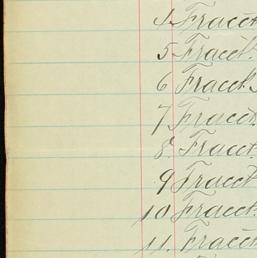 4 Fract
5 Fract.
6 Fract.
7 Fract.
8. Fract.
9 Fract
10 Fract.
11. Fract